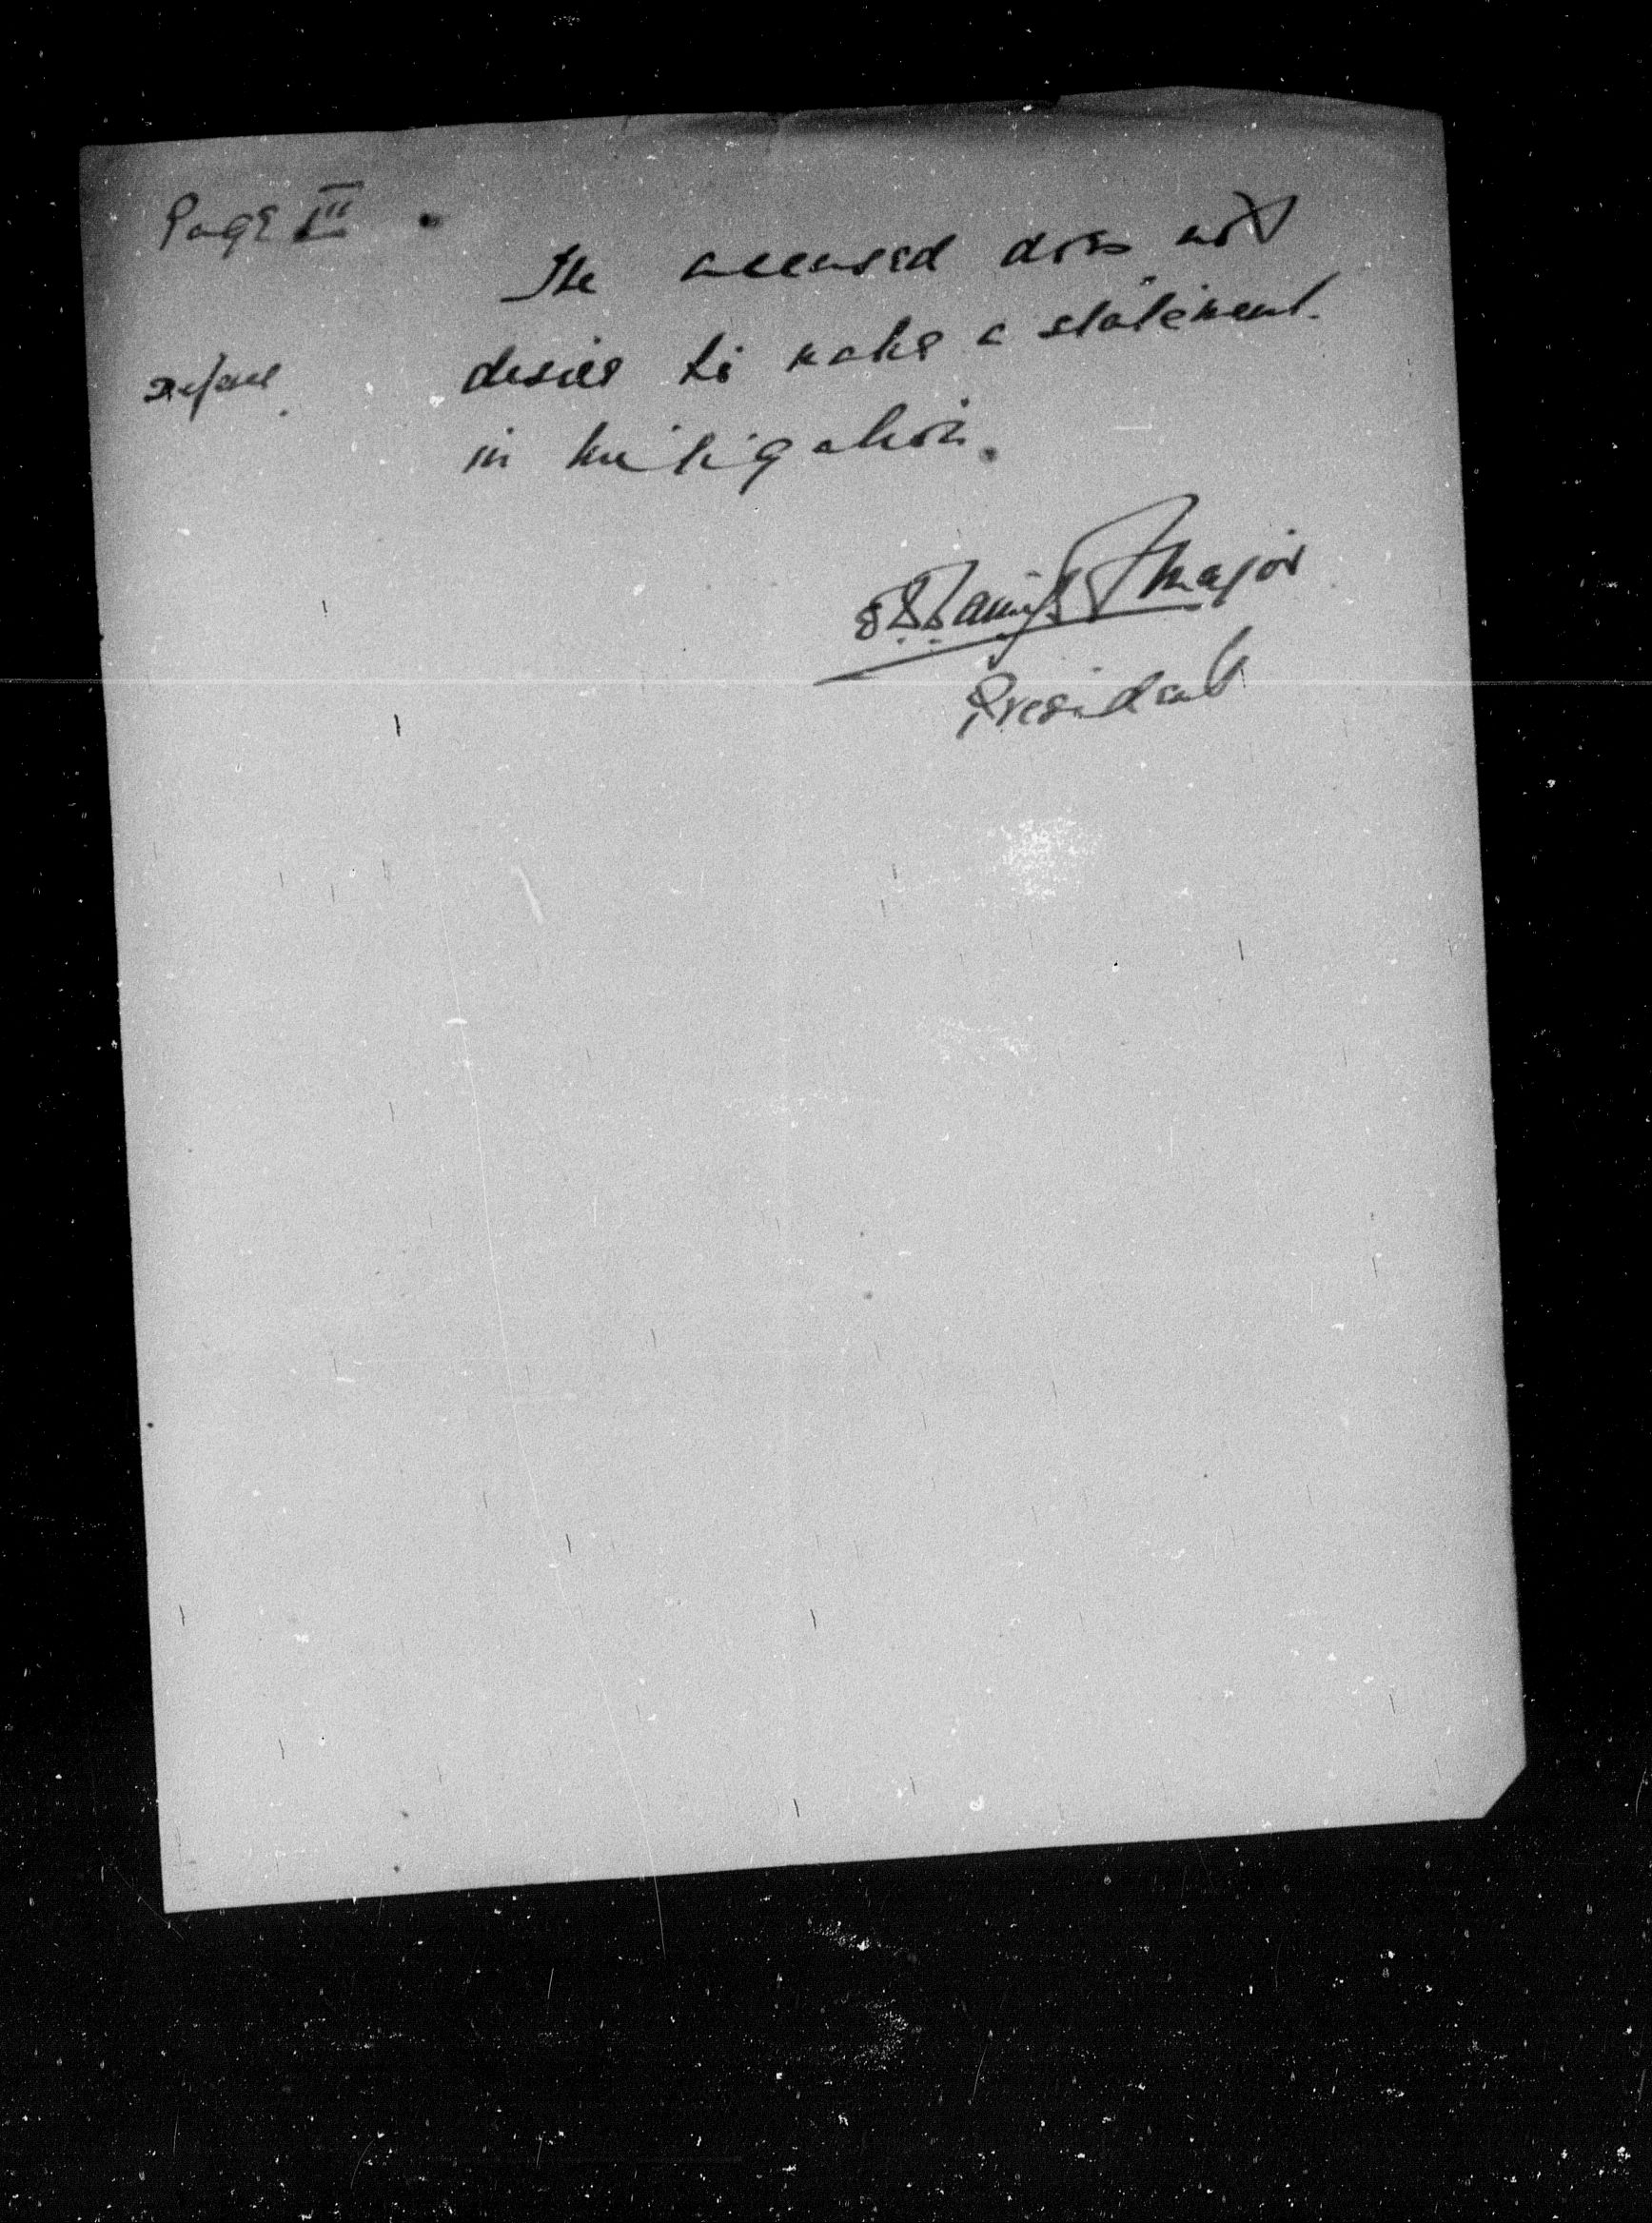 Page III
The accused does not
Defence
desire to make a statement.
in mitigation.
Major
President